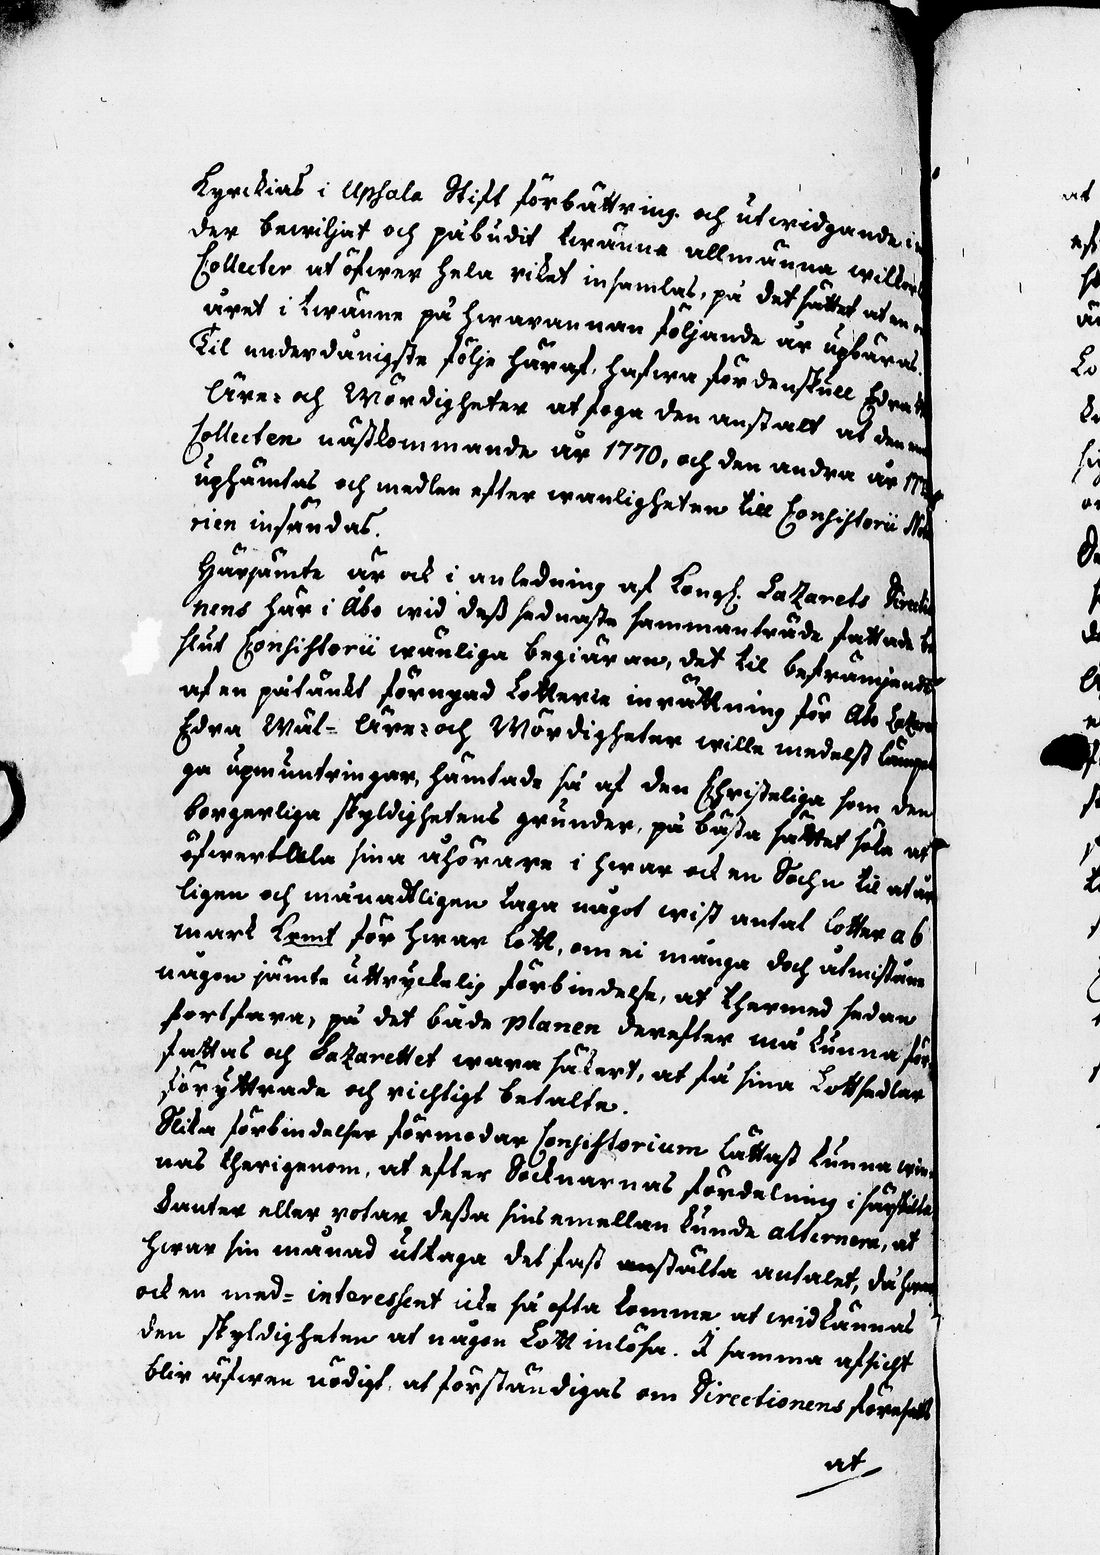 Kyrckias i Upsala Stift förbättring och utwidgande i
der bewiljat och påbudit twänne allmänna
Collecter at öfwer hela riket insamlas, på det sättet at en
året i twänne på hwarannan följande år upbäras.
Til underdånigste följe häraf, hafwa fördenskull Edra
Äre- och Wördigheter at foga den anstalt at den
Collecten nästkommande år 1770, och den andra år
uphämtas och medlen efter wanligheten till Consistorii
rien insändas.
Härjämte är ock i anledning af Kongl. Lazarets
nens här i Åbo wid deß sednaste sammanträde fattade be
slut Consistorii wänliga begiäran, det til befrämjande
af en påtänkt förnyad Lotterie inrättning för Åbo
Edra Wäl- Äre- och Wördigheter wille medelst
ga upmuntringar, hämtade så af den Christeliga som den
borgerliga skyldighetens grunder, på bästa sättet söka at
öfwertala sina åhörare i hwar ock en Sochn til at
ligen och månadtligen taga något wist antal lotter a 6
mark Kmt för hwar lott, om ei många doch åtminstone
någon jämte uttryckelig förbindelse, at thermed sedan
fortfara, på det både planen derefter må kunna för
fattas och Lazarettet wara säkert, at få sina Lottsedlar
föryttrade och richtigt betalte.
Slika förbindelser förmodar Consistorium lättast kunna win
nas therigenom, at efter Socknarnas fördelning i särskilta
kanter eller rotar deßa sins emellan kunde alternera, at
hwar sin månad uttaga det fast anstälta antalet, då
ock en med- interessent icke så ofta komme at widkännas
den skyldigheten at någon Lott inlösa. I samma afsicht
blir äfwen nödigt, at förständigas om Directionens
at